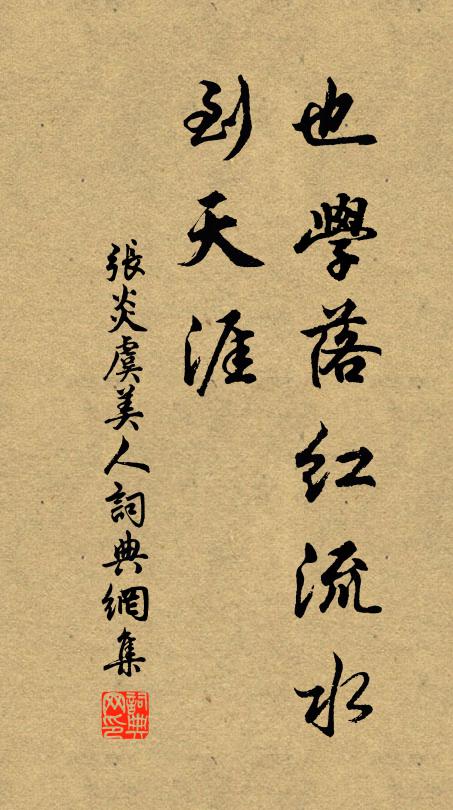 也學落紅流水
到天涯
張炎虞美人詞典網集
詞典
网印